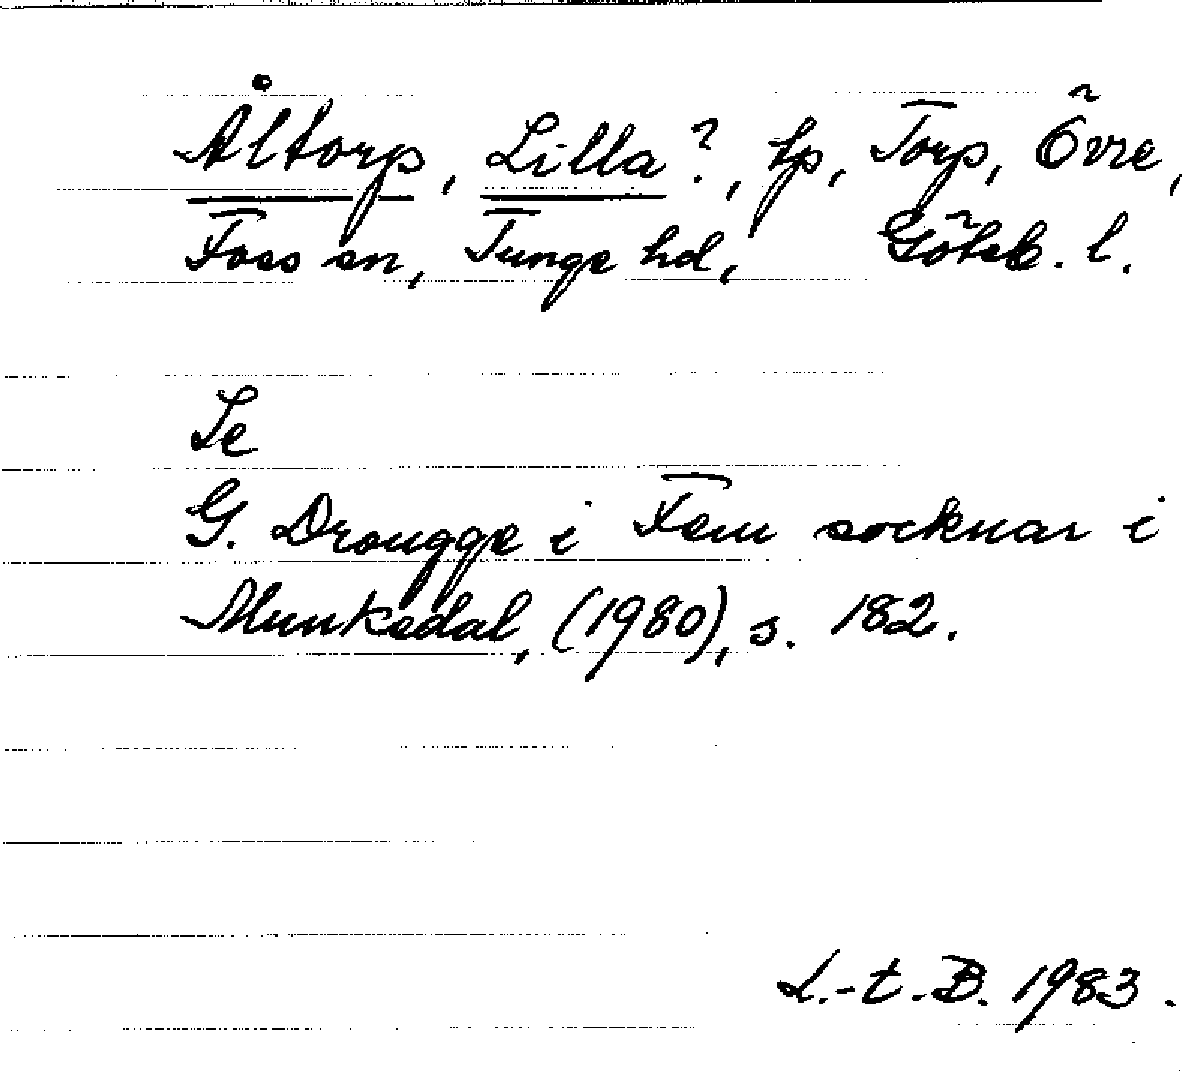 Åltorp, Lilla?, tp, Torp, Övre,
Foss sn, Tunge hd, Göteb. l.
Se
G. Drougge i Fem socknar i
Munkedal, (1980), s. 182.
L.-t.-B. 1983.